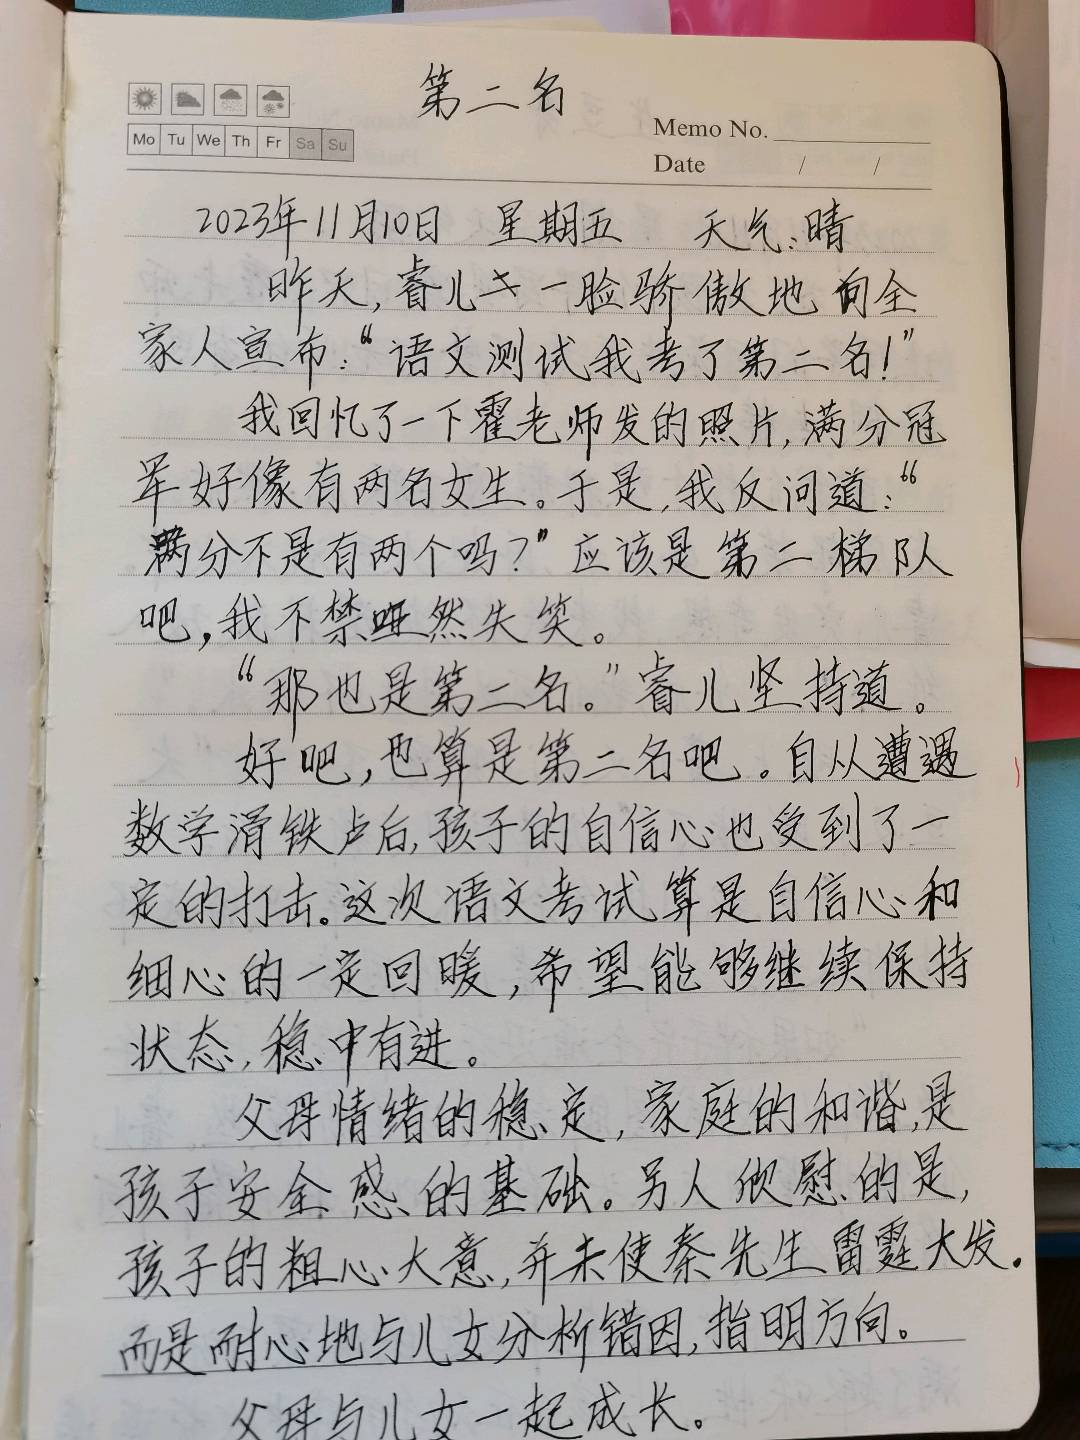 第二名
Mo Tu We Th Fr Sa Su
Memo No.
Date / /
2023年11月10日 星期五 天气:晴
昨天,睿儿一脸骄傲地向全
家人宣布:“语文测试我考了第二名!”
我回忆了一下霍老师发的照片,满分冠
军好像有两名女生。于是,我反问道:“
满分不是有两个吗?”应该是第二梯队
吧,我不禁哑然失笑。
“那也是第二名。”睿儿坚持道。
好吧,也算是第二名吧。自从遭遇
数学滑铁卢后,孩子的自信心也受到了一
定的打击。这次语文考试算是自信心和
细心的一定回暖,希望能够继续保持
状态,稳中有进。
父母情绪的稳定,家庭的和谐,是
孩子安全感的基础。另人欣慰的是,
孩子的粗心大意,并未使秦先生雷霆大发。
而是耐心地与儿女分析错因,指明方向。
父母与儿女一起成长。